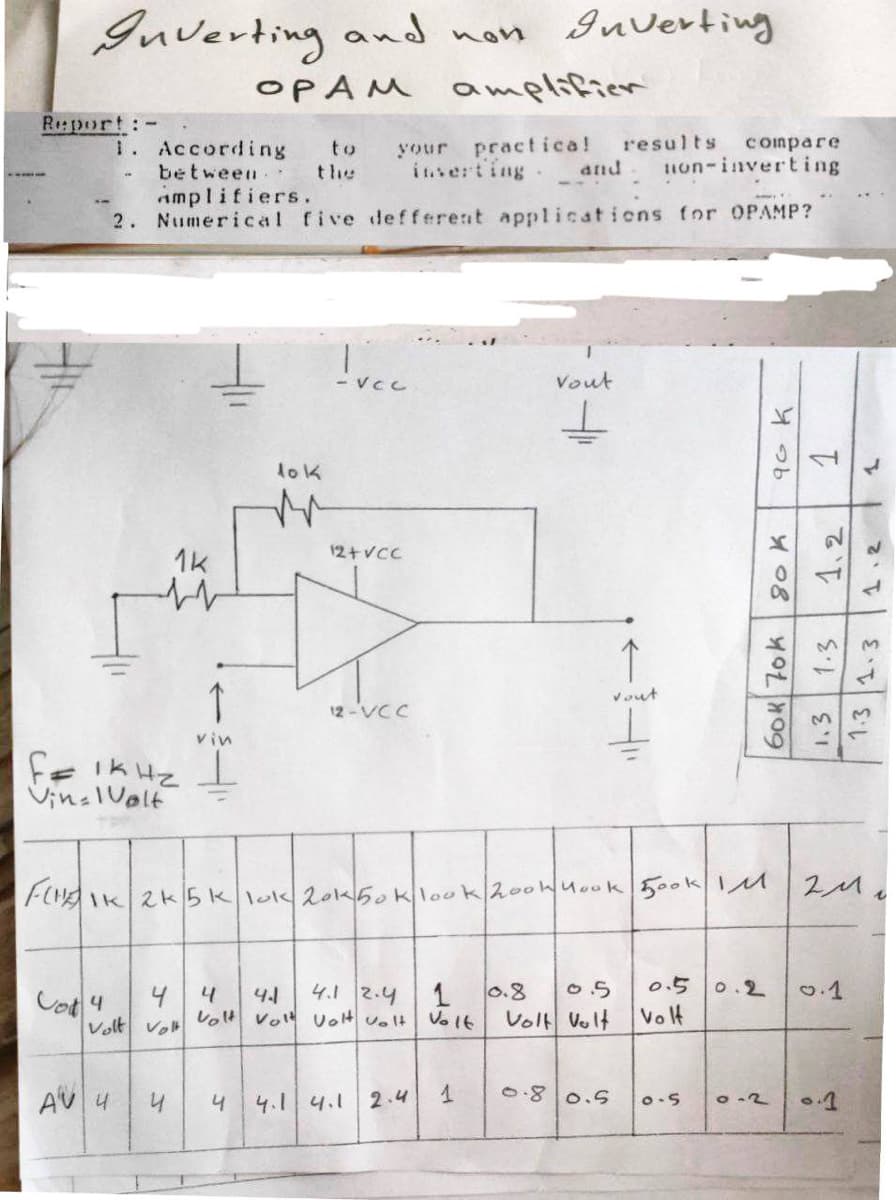 Inverting and non Inverting
OPAM amplifier
Report :-
1. According to your practical results compare
between the inverting and non-inverting
amplifiers.
2. Numerical five defferent applications for OPAMP?
- VCC
Vout
10K
1K
12+VCC
12-VCC
Vin
Vout
F= 1KHz
Vin=1Volt
60K 70K 80K 90K
1.3 1.3 1.2 1
1.3 1.3 1.2 1
F(Hz) 1K 2K 5K 10K 20K 50K 100K 200K 400K 500K 1M 2M
4 4 4 4.1 4.1 2.4 1 0.8 0.5 0.5 0.2 0.1
Volt Volt Volt Volt Volt Volt Volt Volt Volt Volt
AV 4 4 4 4.1 4.1 2.4 1 0.8 0.5 0.5 0.2 0.1